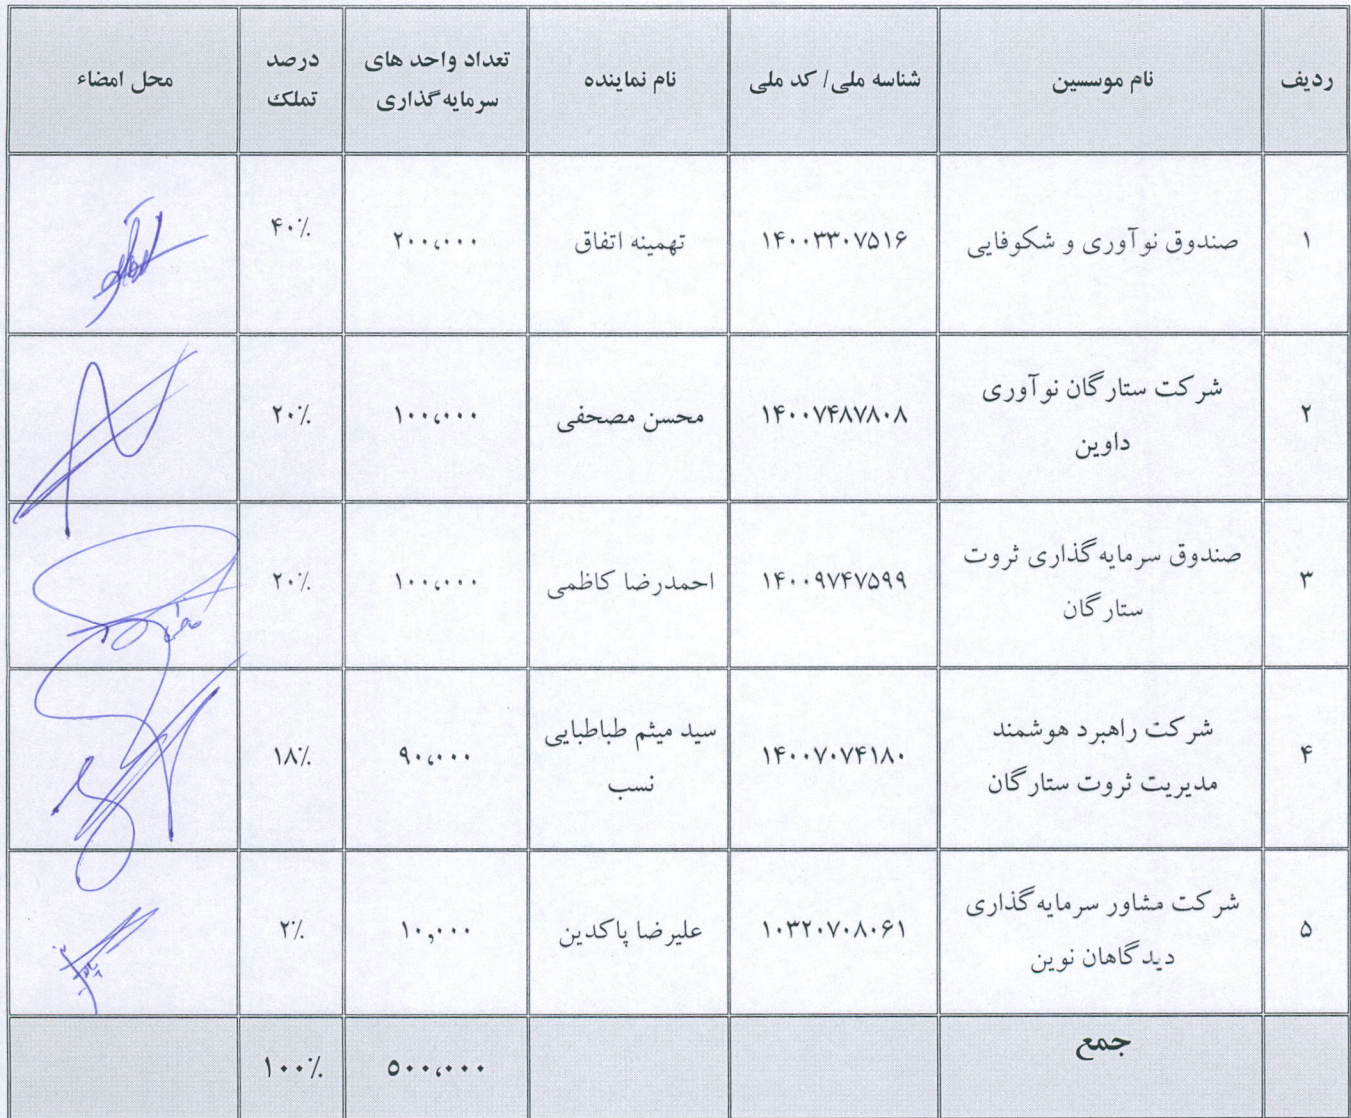 ردیف
نام موسسین
شناسه ملی/ کد ملی
نام نماینده
تعداد واحد های
سرمایه گذاری
درصد
تملک
محل امضاء
۱
صندوق نوآوری و شکوفایی
۱۴۰۰۳۳۰۷۵۱۶
تهمینه اتفاق
۲۰۰،۰۰۰
۴۰٪
۲
شرکت ستارگان نوآوری
داوین
۱۴۰۰۷۴۸۷۸۰۸
محسن مصحفی
۱۰۰،۰۰۰
۲۰٪
۳
صندوق سرمایه گذاری ثروت
ستارگان
۱۴۰۰۹۷۴۷۵۹۹
احمدرضا کاظمی
۱۰۰،۰۰۰
۲۰٪
۴
شرکت راهبرد هوشمند
مدیریت ثروت ستارگان
۱۴۰۰۷۰۷۴۱۸۰
سید میثم طباطبایی
نسب
۹۰،۰۰۰
۱۸٪
۵
شرکت مشاور سرمایه گذاری
دیدگاهان نوین
۱۰۳۲۰۷۰۸۰۶۱
علیرضا پاکدین
۱۰,۰۰۰
۲٪
جمع
۵۰۰،۰۰۰
۱۰۰٪